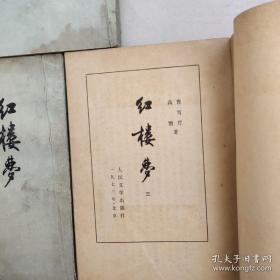 红楼梦
曹雪芹
高鹗 著
红楼梦 三
人民文学出版社
一九七三年·北京
孔夫子旧书网